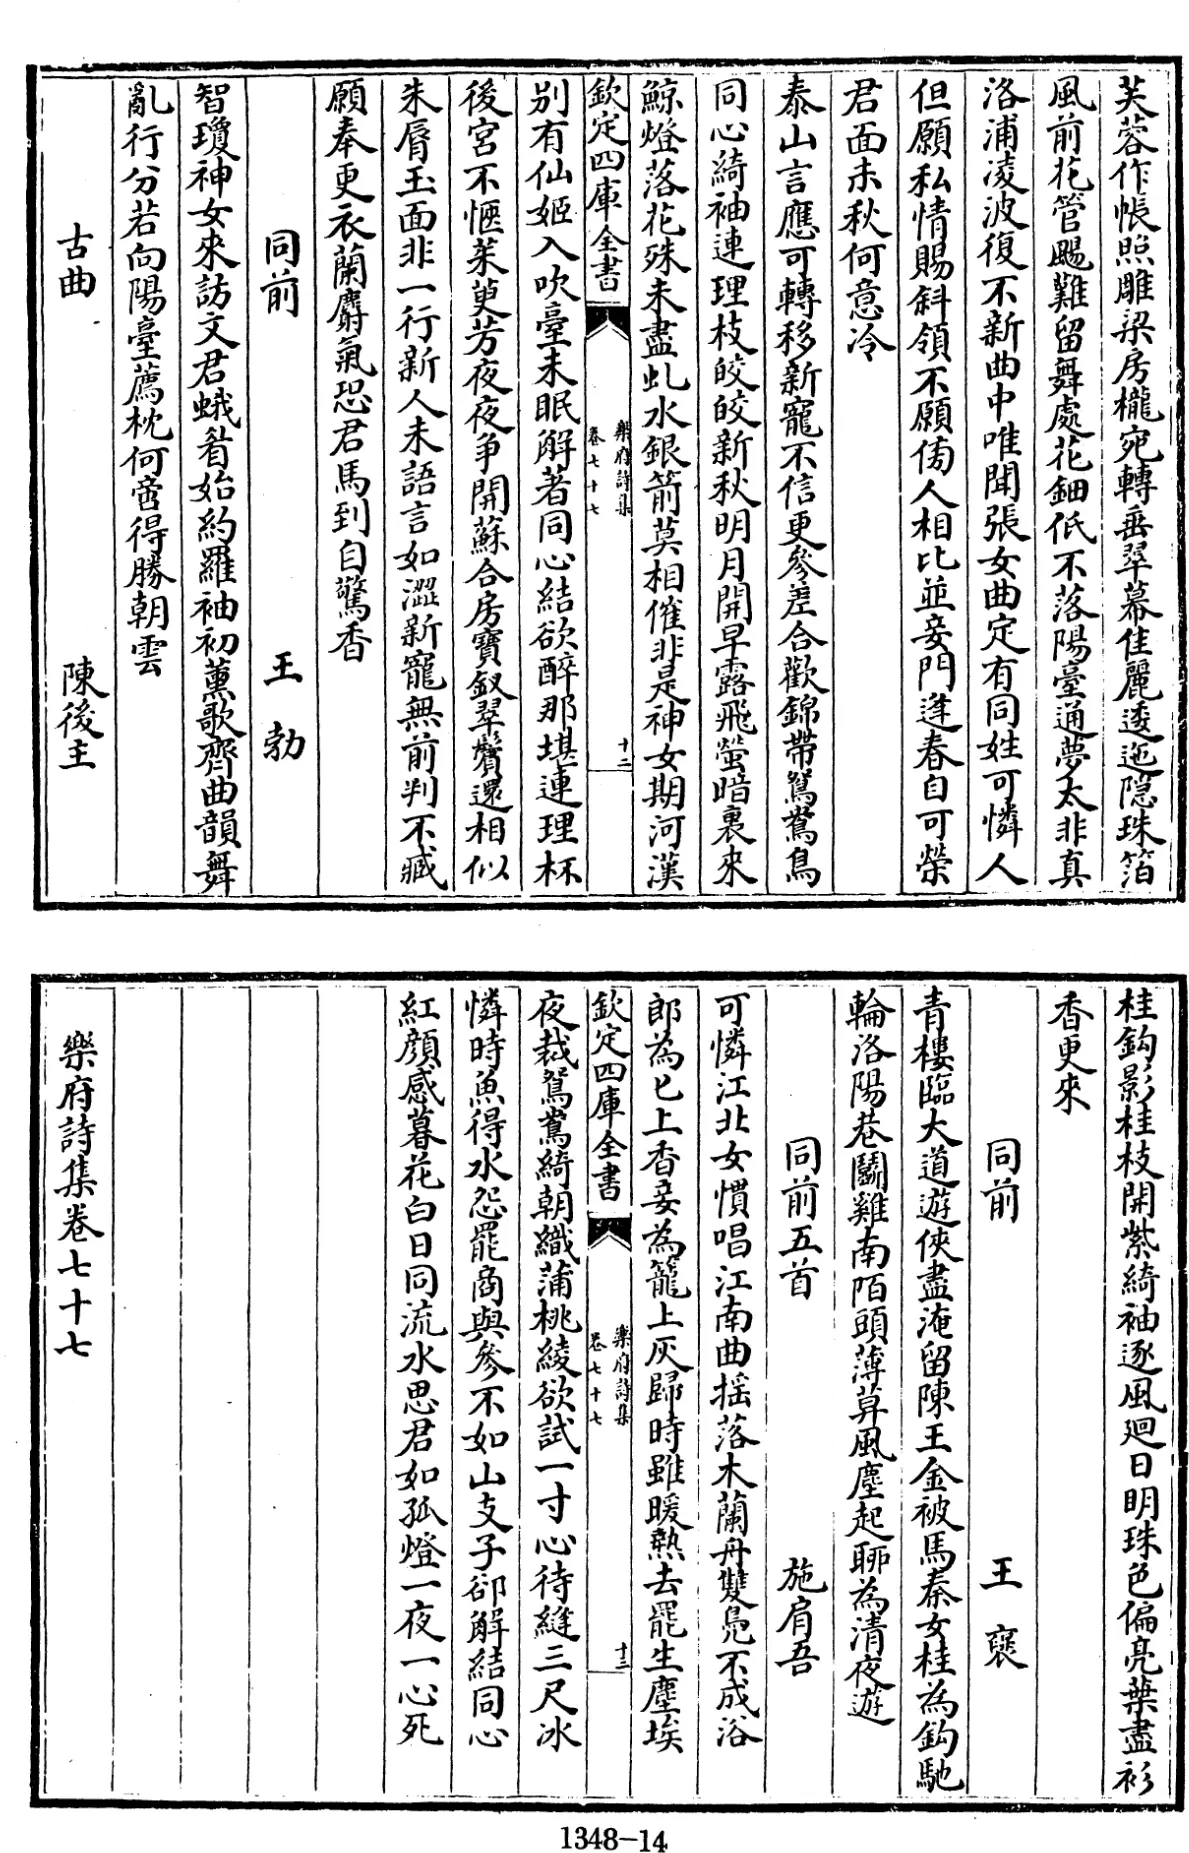 芙蓉作帳照雕梁房櫳宛轉垂翠幕佳麗透迤隱珠箔
風前花管颺難留舞處花鈿低不落陽臺通夢太非真
洛浦凌波復不新曲中唯聞張女曲定有同姓可憐人
但願私情賜斜領不願傍人相比並妾門逢春自可榮
君面未秋何意冷
泰山言應可轉移新寵不信更參差合歡錦帶鴛鴦鳥
同心綺袖連理枝皎皎新秋明月開早露飛螢暗裏來
鯨燈落花殊未盡虬水銀箭莫相催非是神女期河漢
欽定四庫全書
樂府詩集
卷七十七
十二
別有仙姬入吹臺未眠解著同心結欲醉那堪連理杯
後宮不愜茱萸芳夜夜爭開蘇合房寶釵翠鬢還相似
朱脣玉面非一行新人未語言如澀新寵無前判不臧
願奉更衣蘭麝氣恐君馬到自驚香
同前 王勃
智瓊神女來訪文君蛾眉始約羅袖初薰歌齊曲韻舞
亂行分若向陽臺薦枕何啻得勝朝雲
古曲 陳後主
桂鈎影桂枝開紫綺袖逐風廻日明珠色偏亮葉盡衫
香更來
同前 王褒
青樓臨大道遊俠盡淹留陳王金被馬秦女桂為鈎馳
輪洛陽巷鬬雞南陌頭薄暮風塵起聊為清夜遊
同前五首 施肩吾
可憐江北女慣唱江南曲摇落木蘭舟雙鳧不成浴
郎為匕上香妾為籠上灰歸時雖暖熱去罷生塵埃
欽定四庫全書
樂府詩集
卷七十七
十三
夜裁鴛鴦綺朝織蒲桃綾欲試一寸心待縫三尺冰
憐時魚得水怨罷商與參不如山支子卻解結同心
紅顔感暮花白日同流水思君如孤燈一夜一心死
樂府詩集卷七十七
1348-14